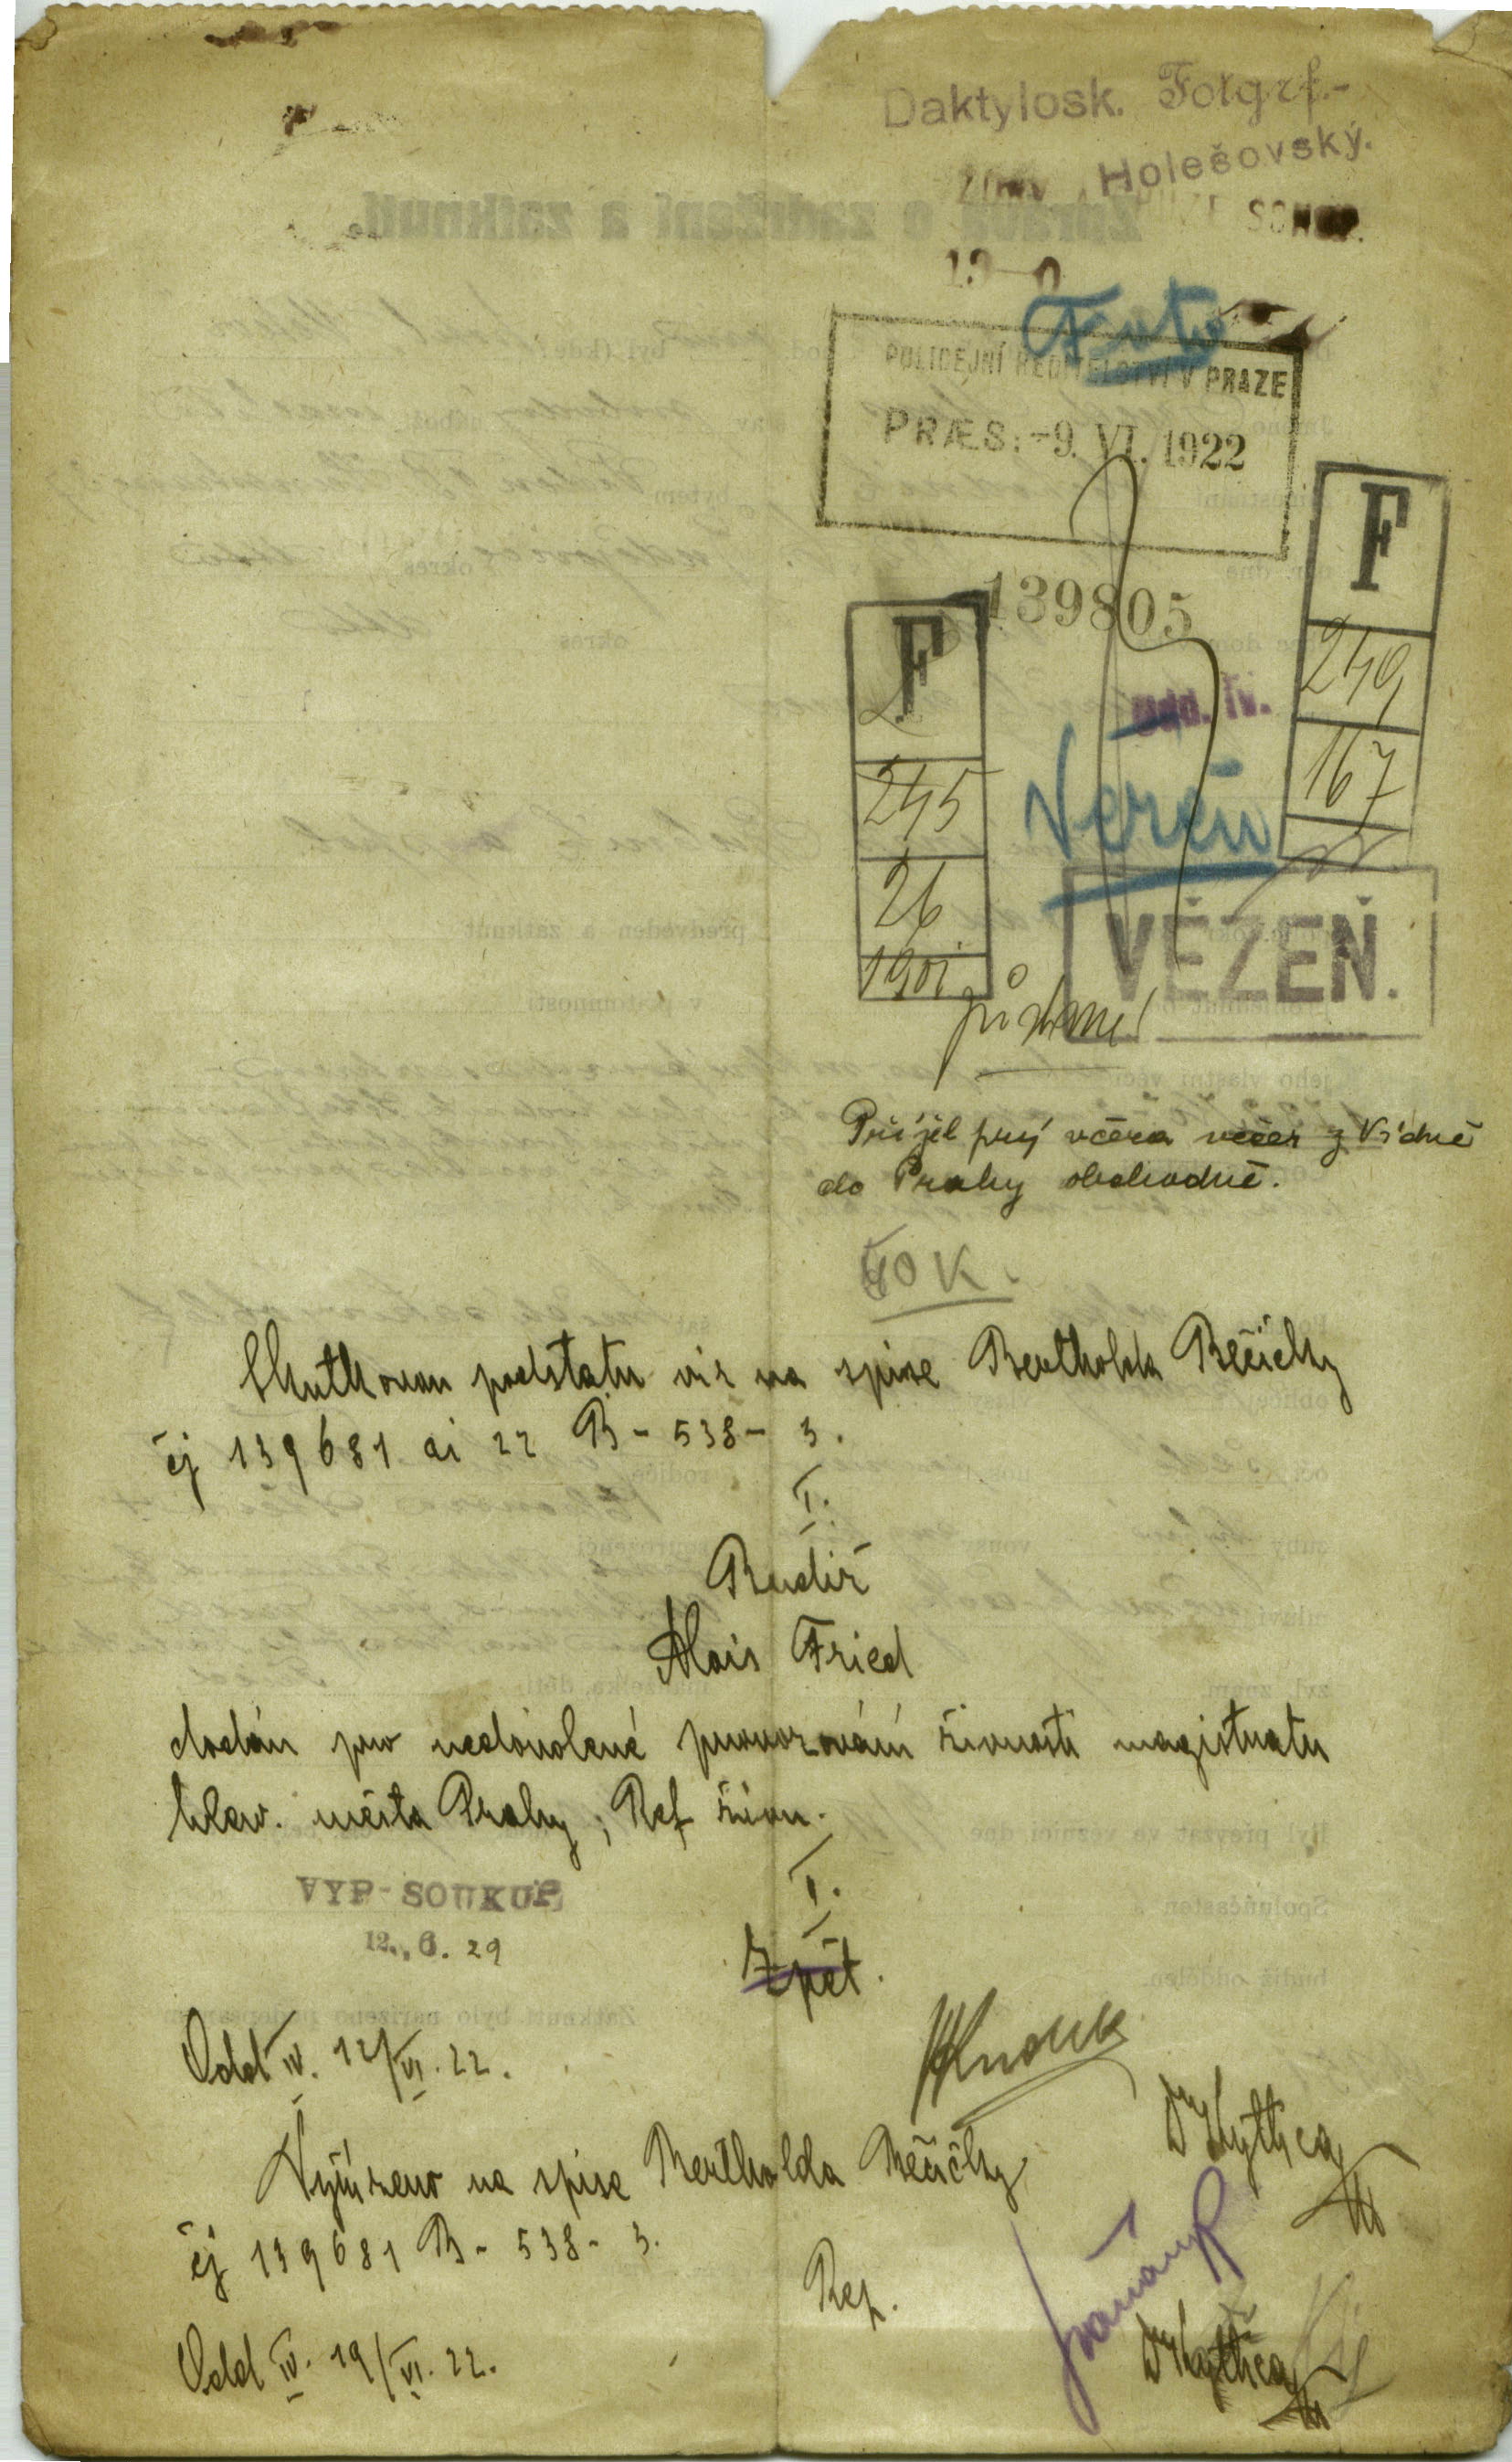 Daktylosk. Fotgrf.-
Holešovský.
Foto
POLICEJNÍ ŘEDITELSTVÍ V PRAZE
PRÆS: -9. VI. 1922
139805
F
249
167
F
245
26
1901
Odd. IV.
VĚZEŇ.
Přijel prý včera večer z Vídně
do Prahy obchodně.
40 K.
Skutkovou podstatu viz na spise Bertholda
čj 139681 ai 22 B - 538 - 3.
I.
Budiž
Alois Fried
dodán pro nedovolené provozování živnosti magistratu
hlav. města Prahy, Ref živn.
VYP-SOUKUP
12. 6. 29
I.
Zpět.
Odd IV. 12/VI. 22.
Vyřízeno na spise Bertholda
čj 139681 B - 538 - 3.
Rep.
Odd IV. 19/VI. 22.